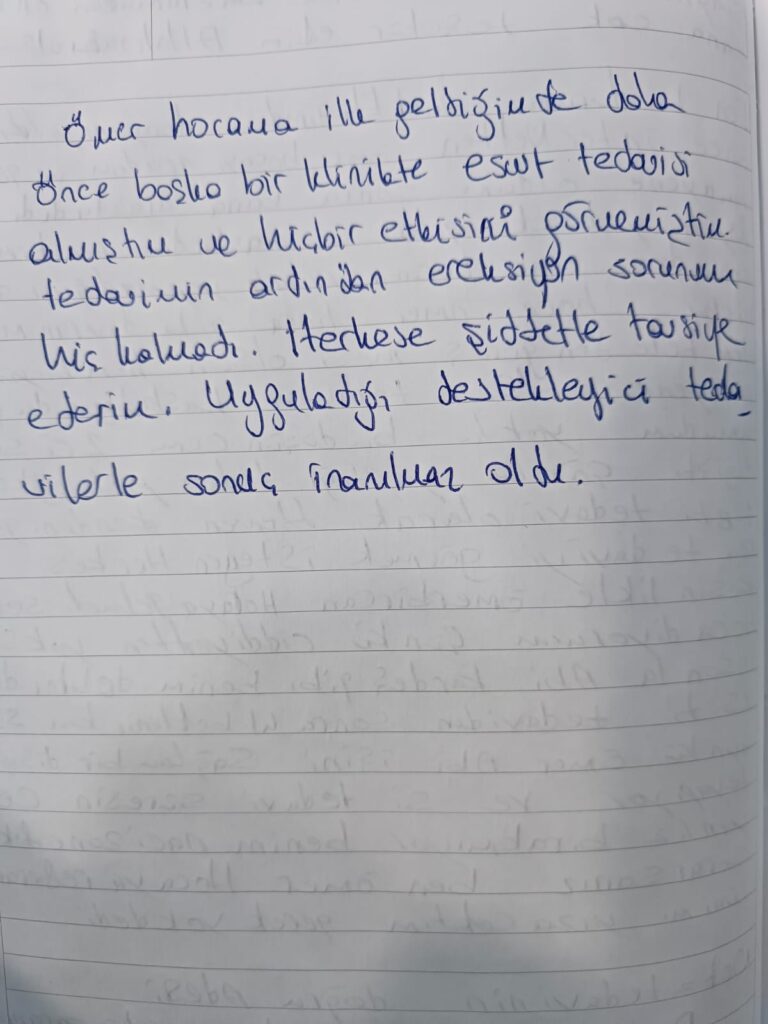 Ömer hocama ilk geldiğimde daha
Önce başka bir klinikte eswt tedavisi
almıştım ve hiçbir etkisini görmemiştim.
tedavimin ardından ereksiyon sorunum
hiç kalmadı. Herkese şiddetle tavsiye
ederim. Uyguladığı destekleyici teda_
vilerle sonuç inanılmaz oldu.